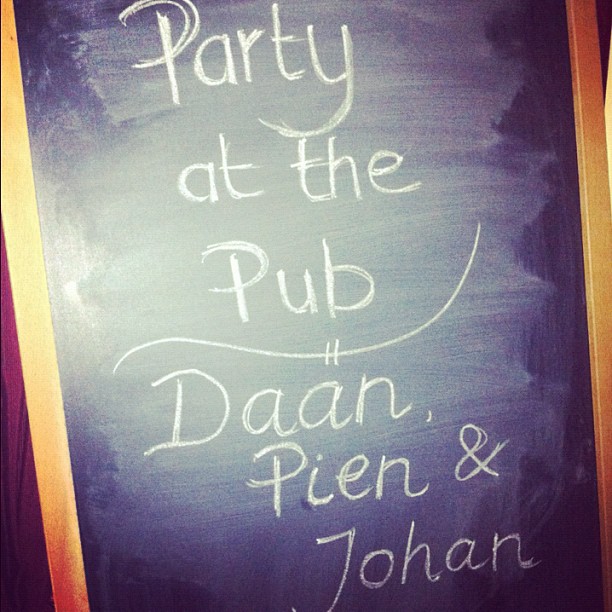 Party
at the
Pub
Daän,
Pien &
Johan